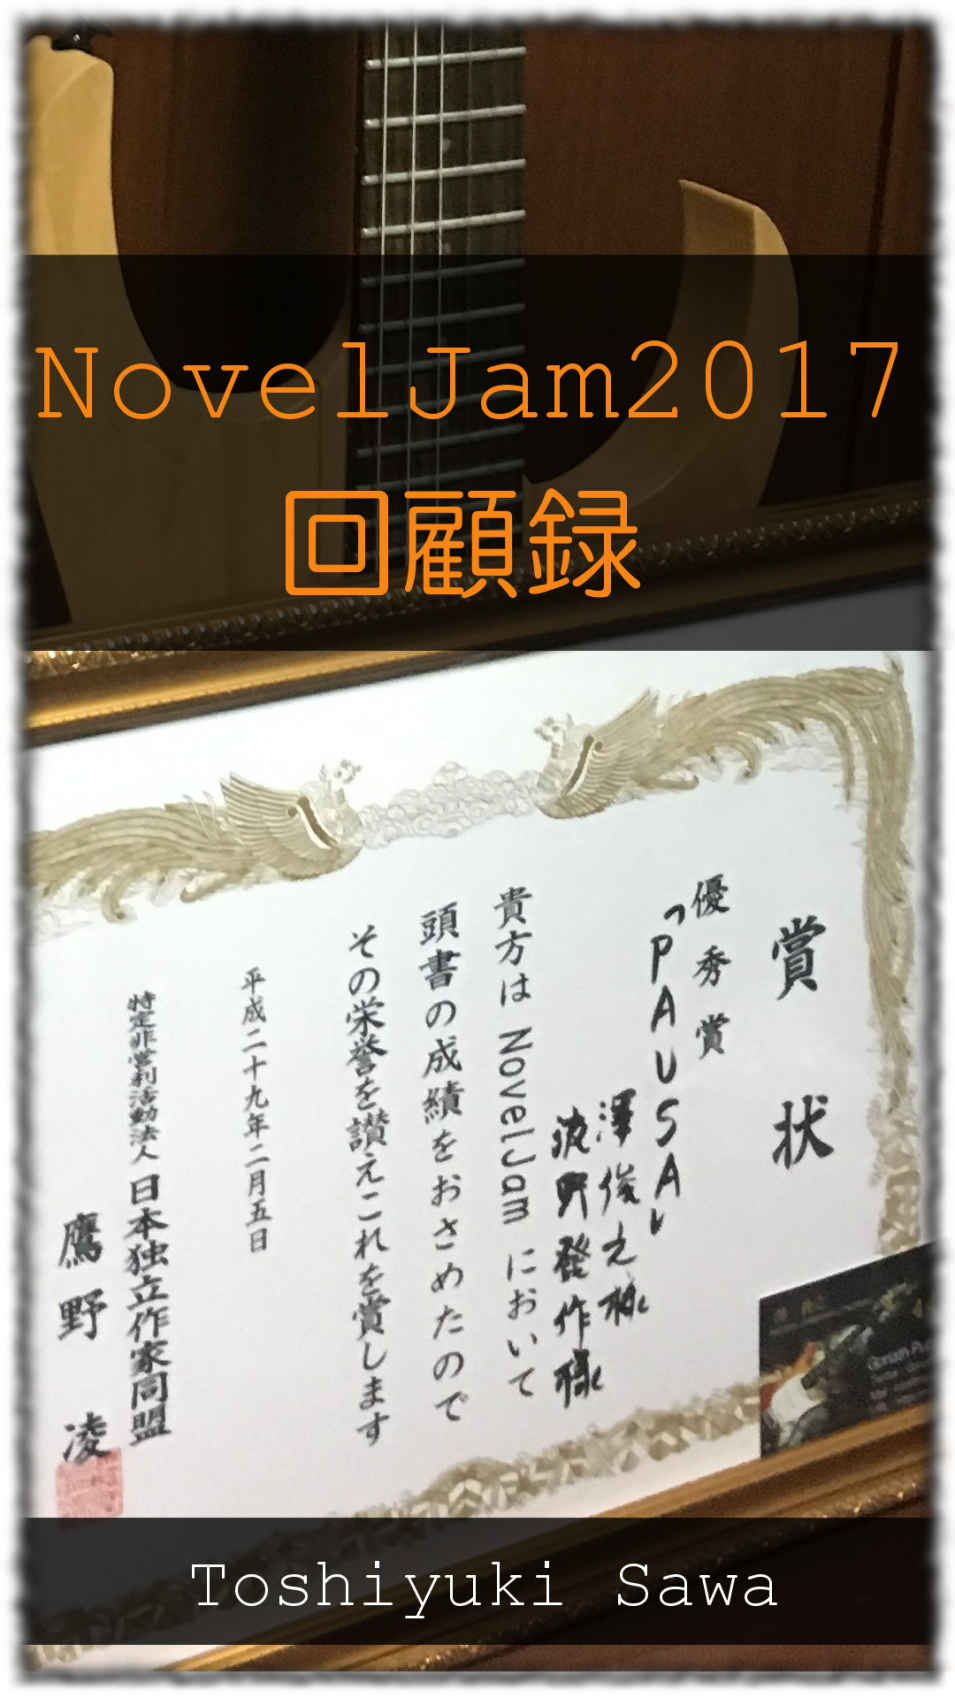 NovelJam2017
回顧録
賞状
優秀賞
「PAUSA」
澤俊之様
波野發作様
貴方は NovelJam において
頭書の成績をおさめたので
その栄誉を讃えこれを賞します
平成二十九年二月五日
特定非営利活動法人 日本独立作家同盟
鷹野 凌
Toshiyuki Sawa